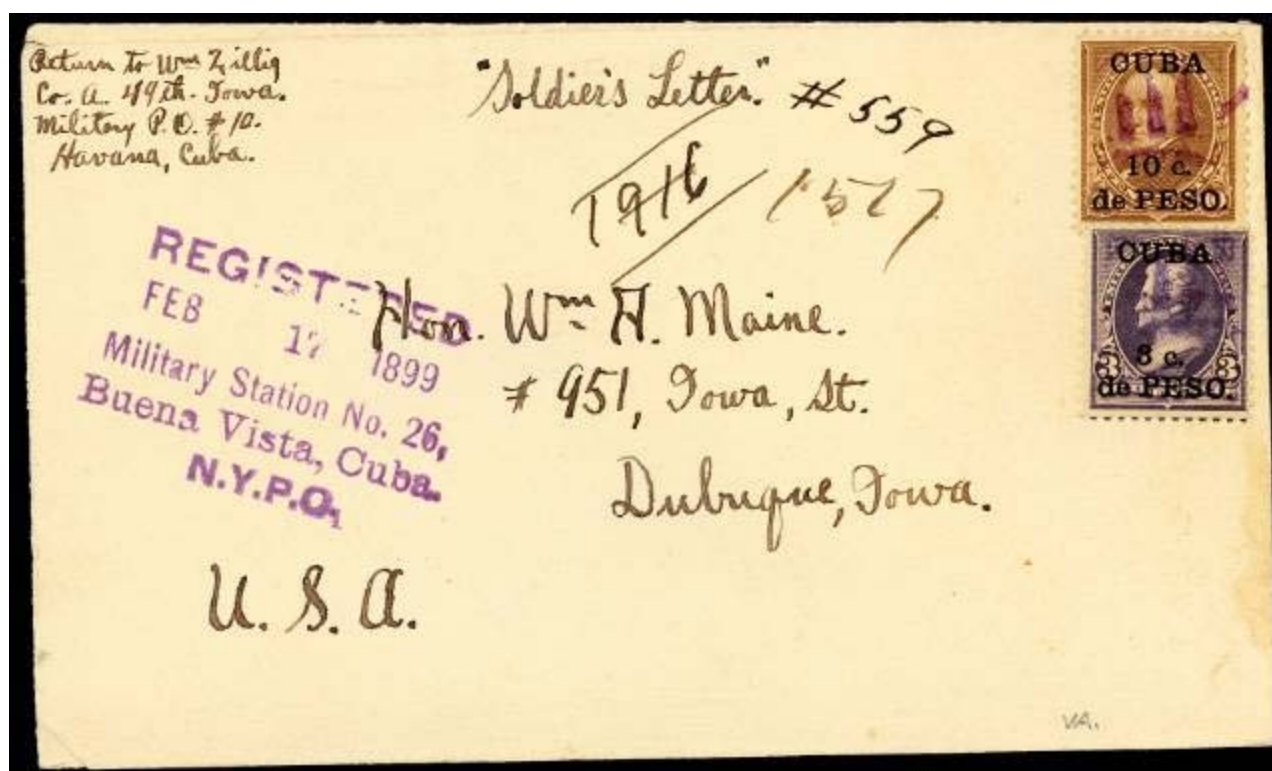 Return to Wm Zillig
Co. A. 49th. Iowa.
Military P.O. #10.
Havana, Cuba.
"Soldier's Letter."
#559
1916
1517
CUBA
10 c.
de PESO.
CUBA
3 c.
de PESO.
3 3
REGISTERED
FEB 17 1899
Military Station No. 26,
Buena Vista, Cuba.
N.Y.P.O.
Hon. Wm H. Maine.
# 951, Iowa, St.
Dubuque, Iowa.
U. S. A.
VA.